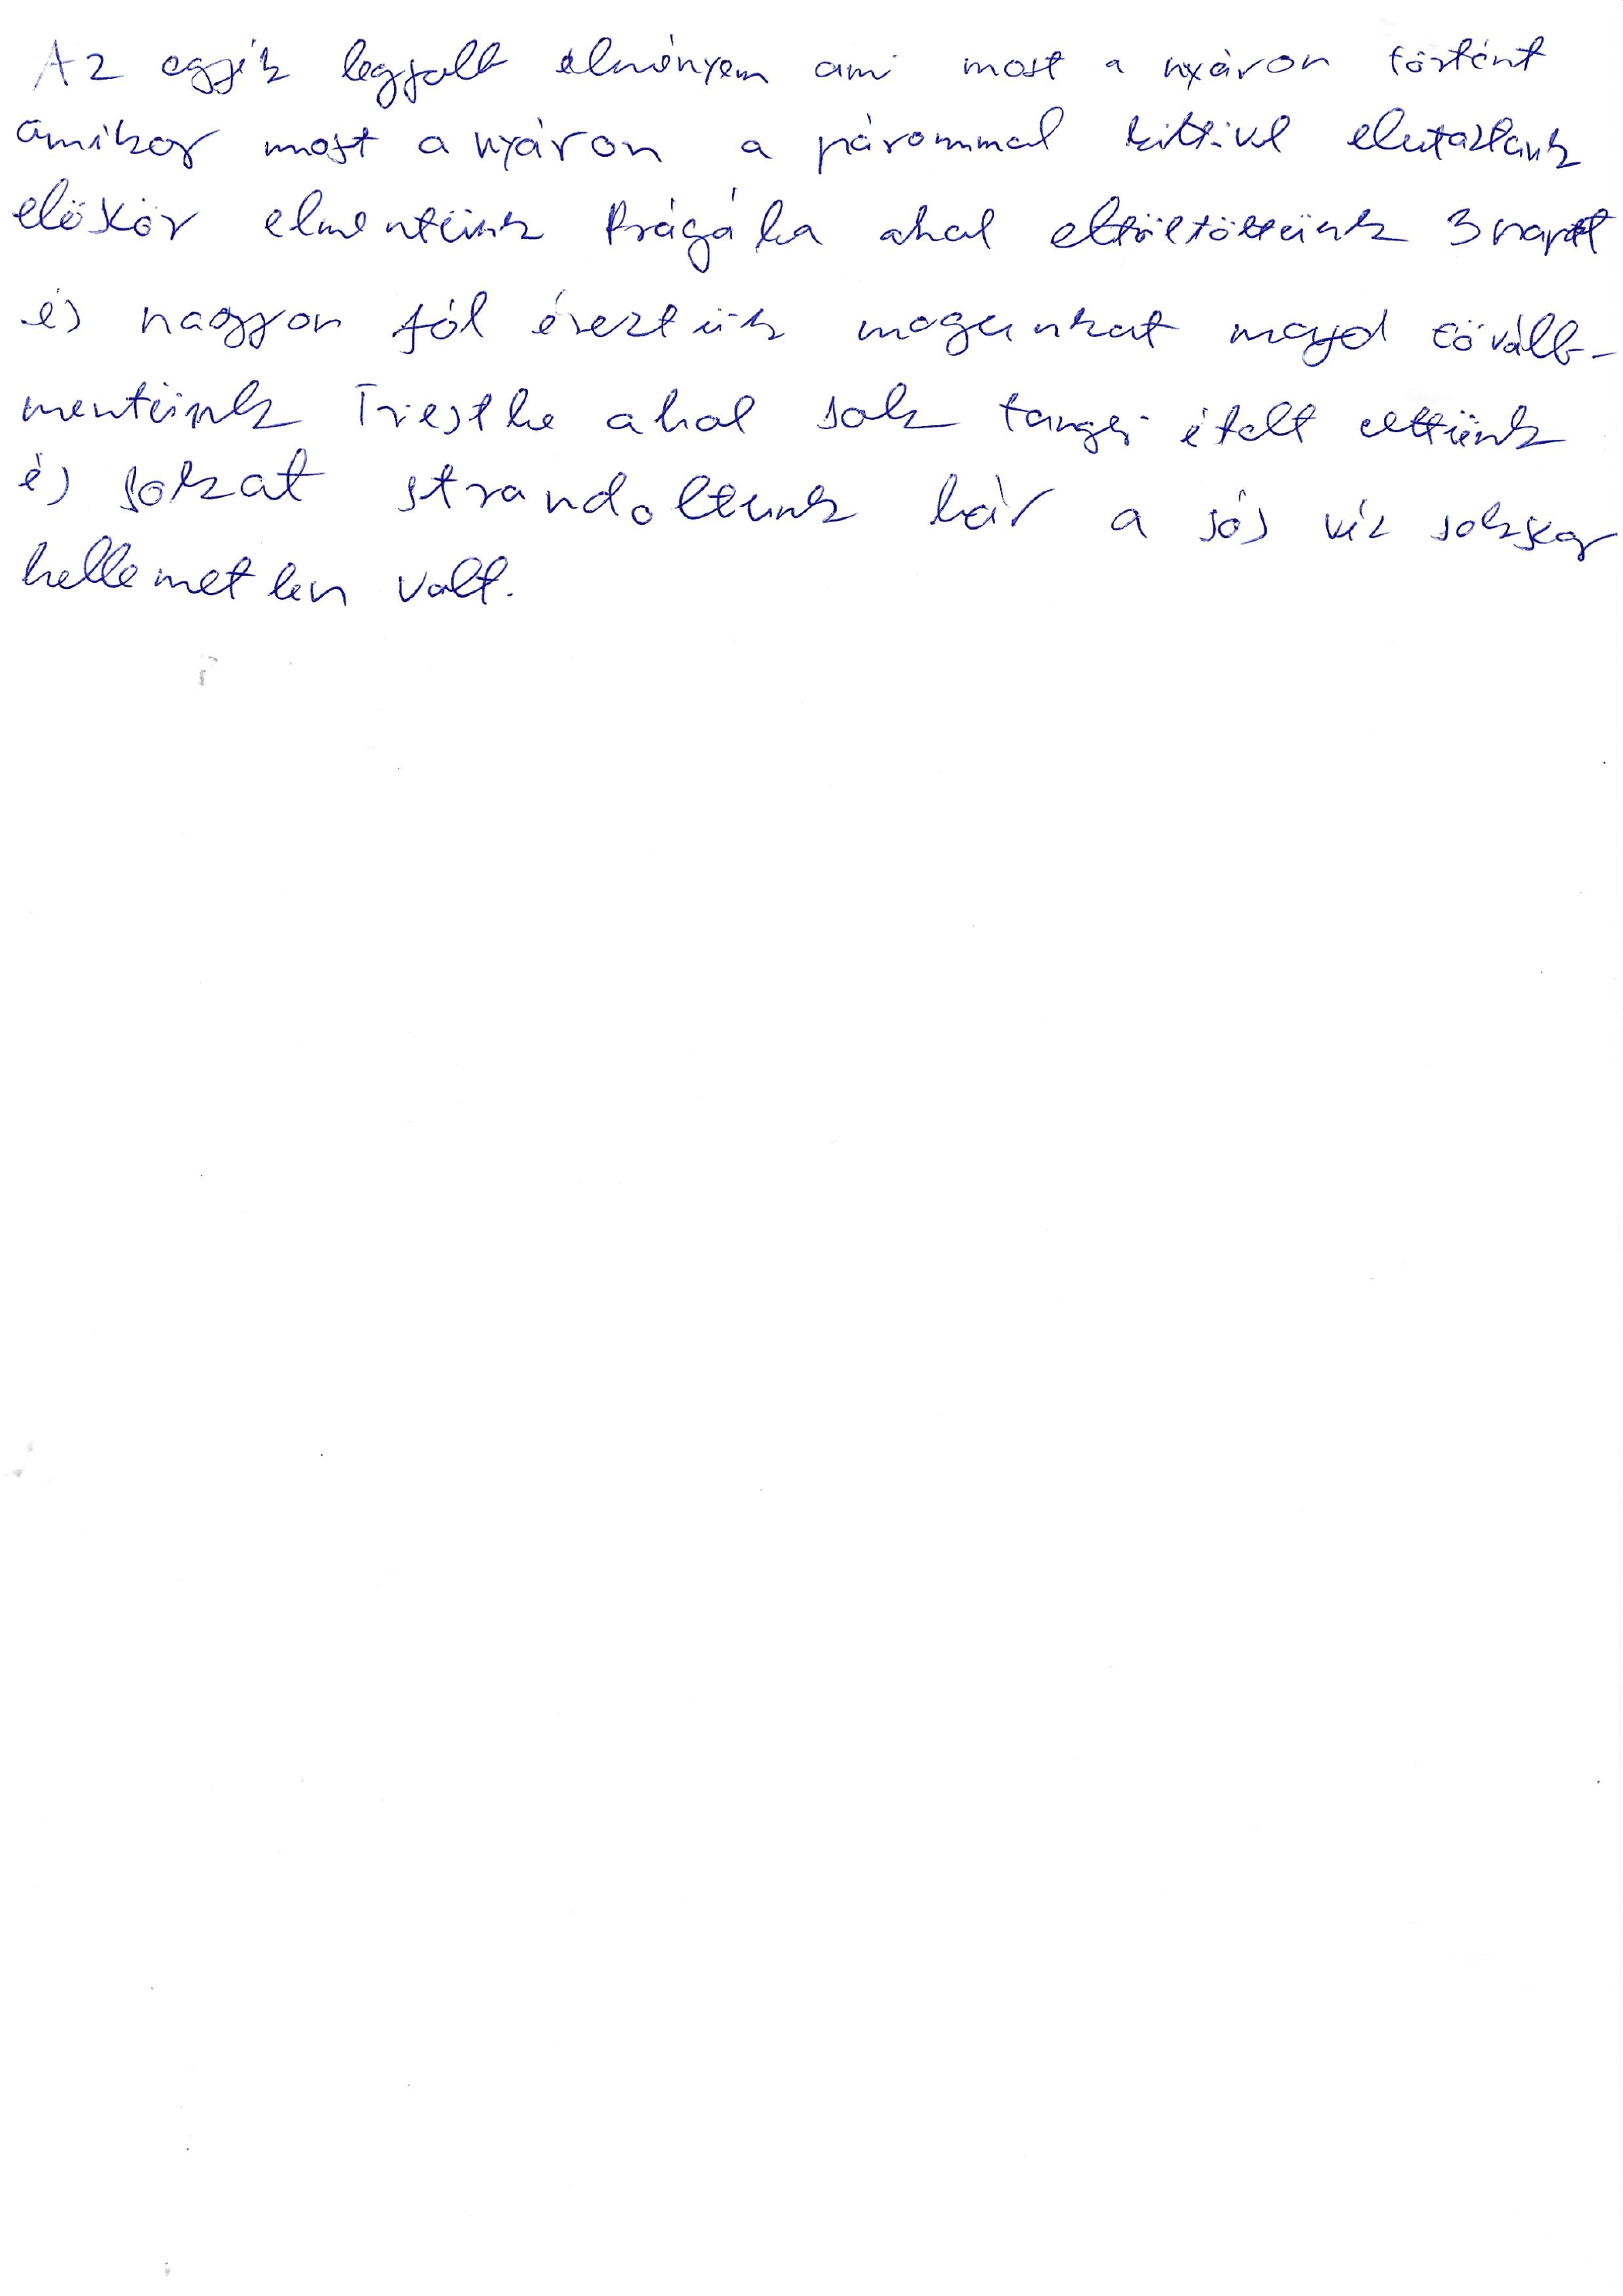 Az egyik legjobb élményem ami most a nyáron történt
amikor most a nyáron a párommal kittivel elutaztunk
előszőr elmentünk Prágába ahol eltöltöttünk 3 napot
és nagyon jól éreztük magunkat majd tovább-
mentünk Triestbe ahol sok tengeri ételt ettünk
és sokat strandoltunk bár a sós víz sokszor
kellemetlen volt.